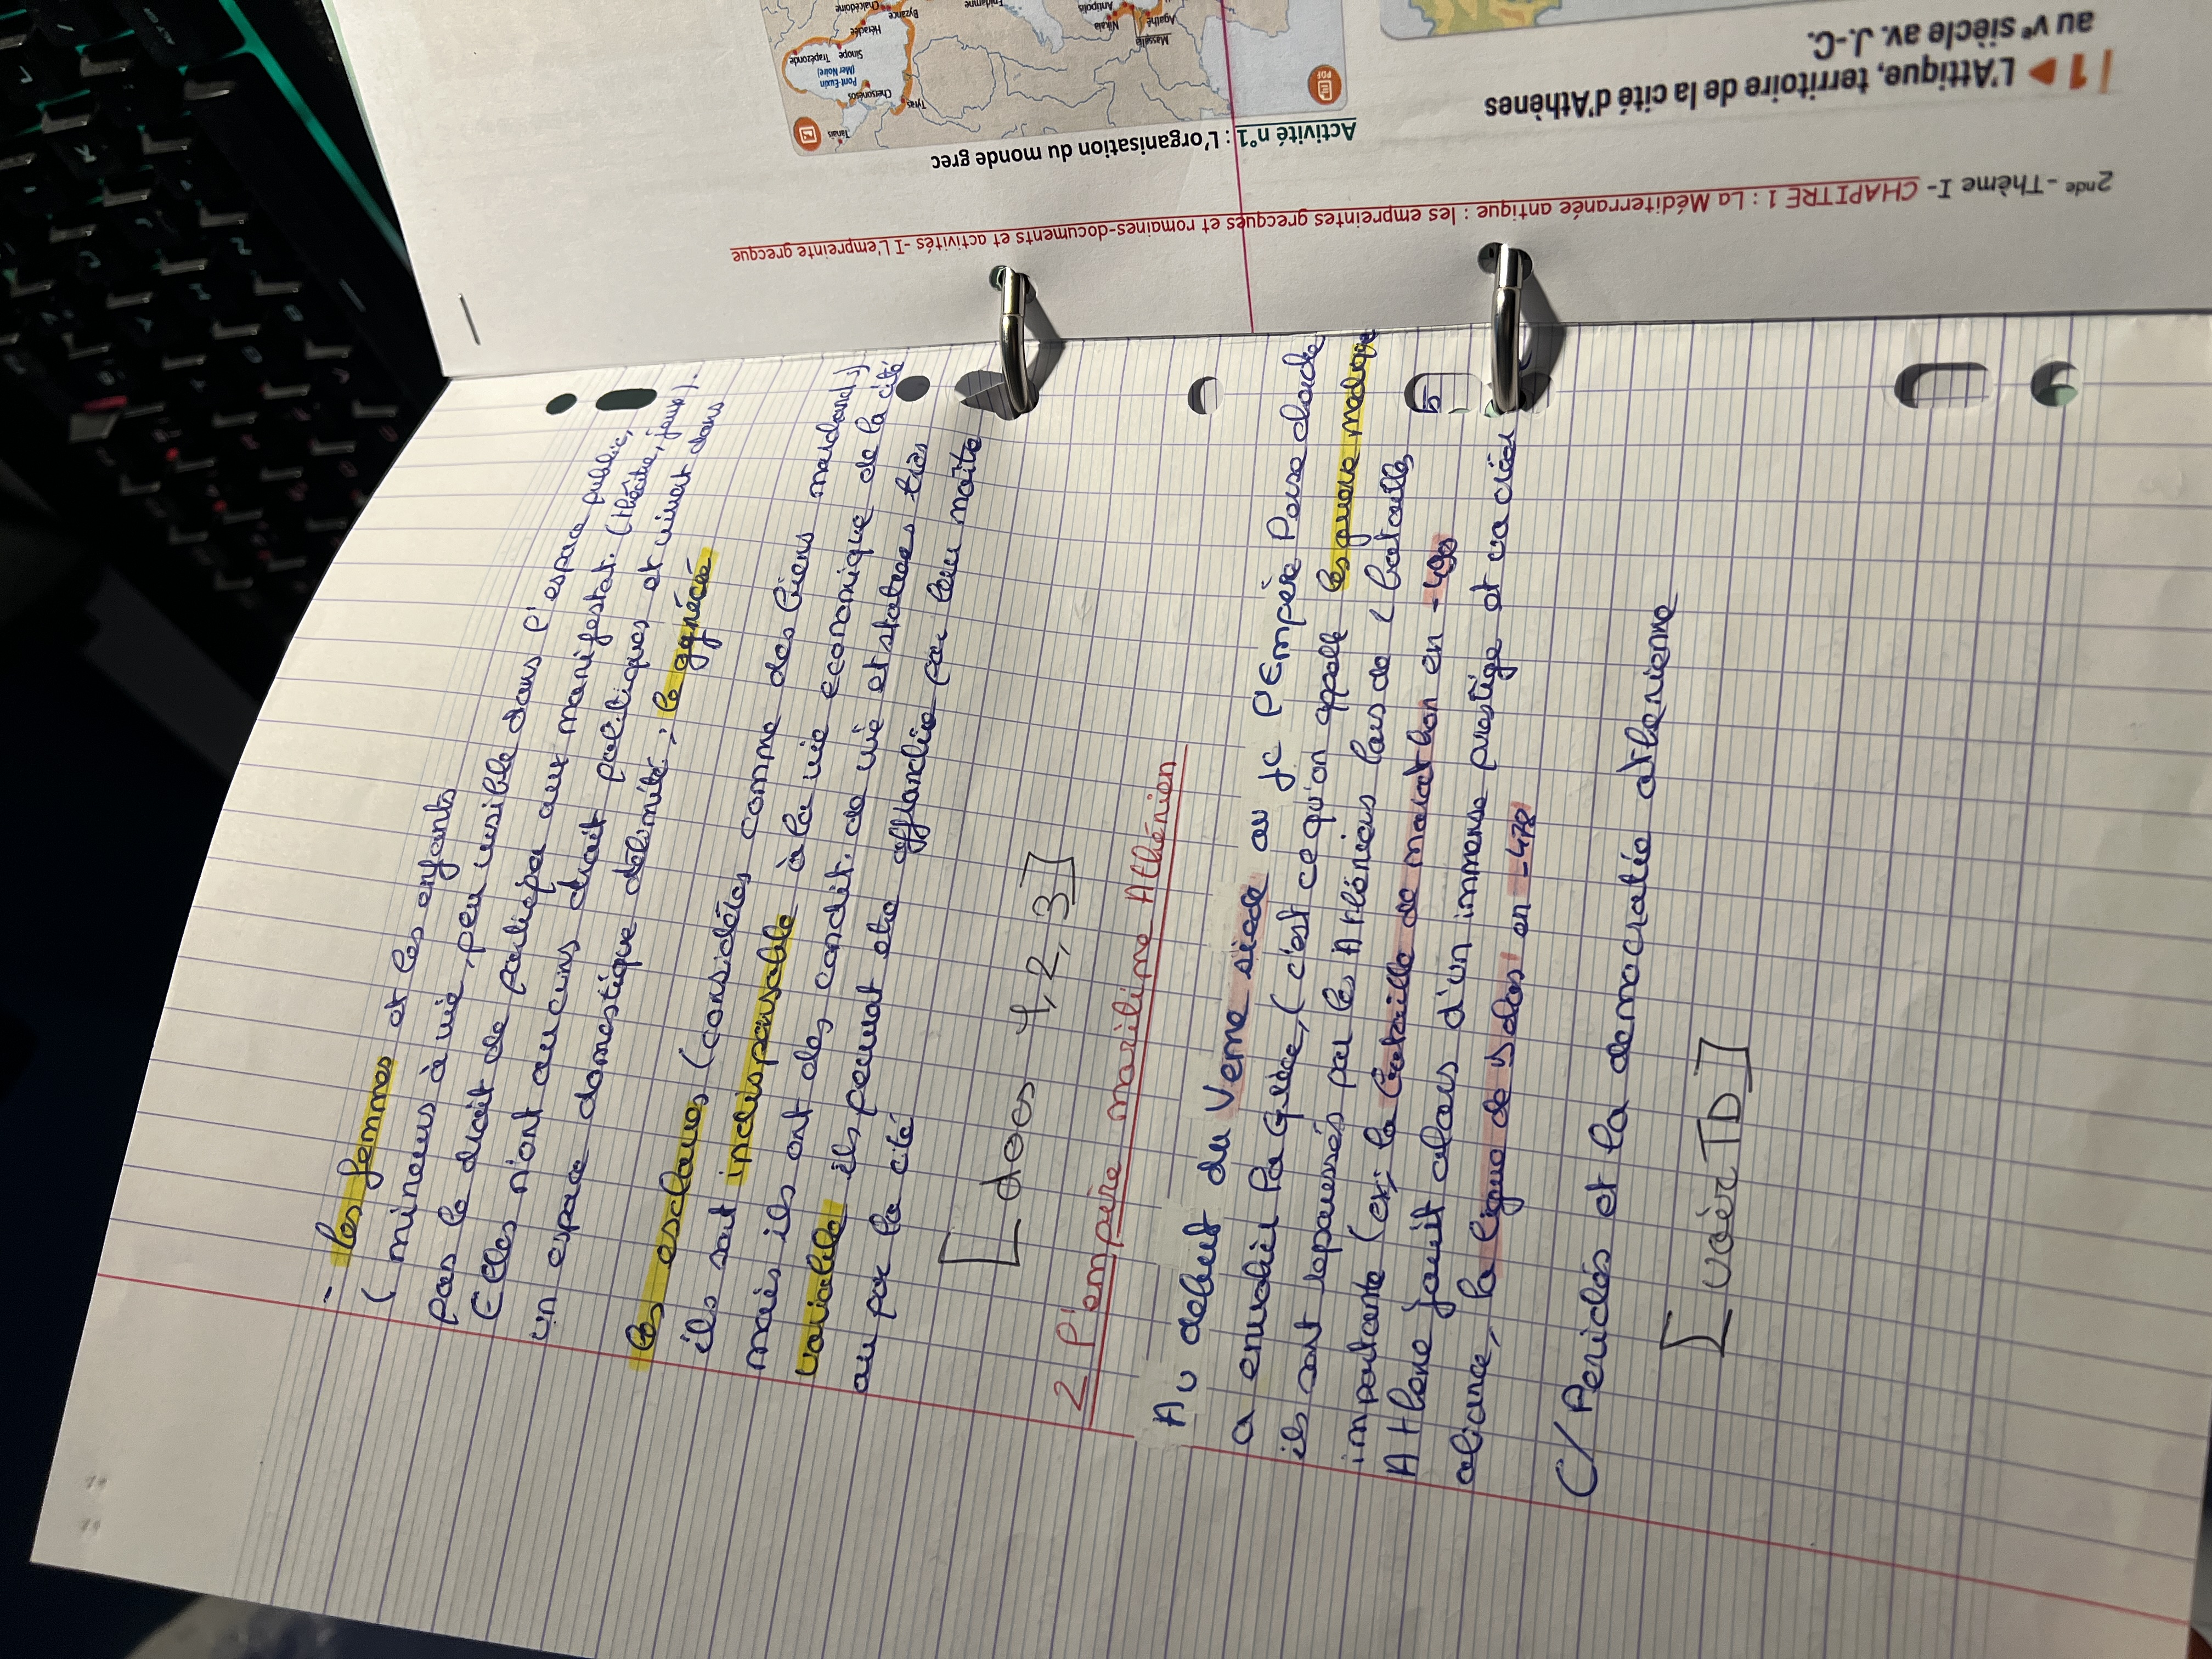 - les femmes et les enfants
( mineurs à vie, peu visible dans l'espace public,
pas le droit de participer aux manifestat. (théâtre, jeux).
Elles n'ont aucuns droit politiques et vivent dans
un espace domestique délimité : le gynécée
les esclaves (considérés comme des biens marchands)
ils sont indispensable à la vie économique de la cité
mais ils ont des condit. de vie et statues très
variable ils peuvent etre affranchie par leur maitre
ou par la cité
[ docs 1, 2, 3 ]
2 l'empire maritime Athénien
Au debut du Veme siecle av JC l'Empire Perse
a envahir la Grèce, ( c'est ce qu'on appelle les guerre
ils sont repoussés par les Athéniens lors de bataille
importante (ex: la bataille de marathon en - 490
Athene jouit alors d'un immense préstige et va créer
aliance, la ligue de en -478
5
C/ Periclés et la democratie athenienne
[ voir TD ]
2nde - Thème I - CHAPITRE 1 : La Méditerranée antique : les empreintes grecques et romaines-documents et activités - I L'empreinte grecque
1 ► L'Attique, territoire de la cité d'Athènes
au Ve siècle av. J.-C.
Activité n°1 : L'organisation du monde grec
PDF
Tanaïs
Tyras
Chersonésos
Pont-Euxin
(Mer Noire)
Sinope
Trapézonde
Héraclée
Byzance
Chalcédoine
Epidamne
Massalia
Agathé
Nikaia
Antipolis